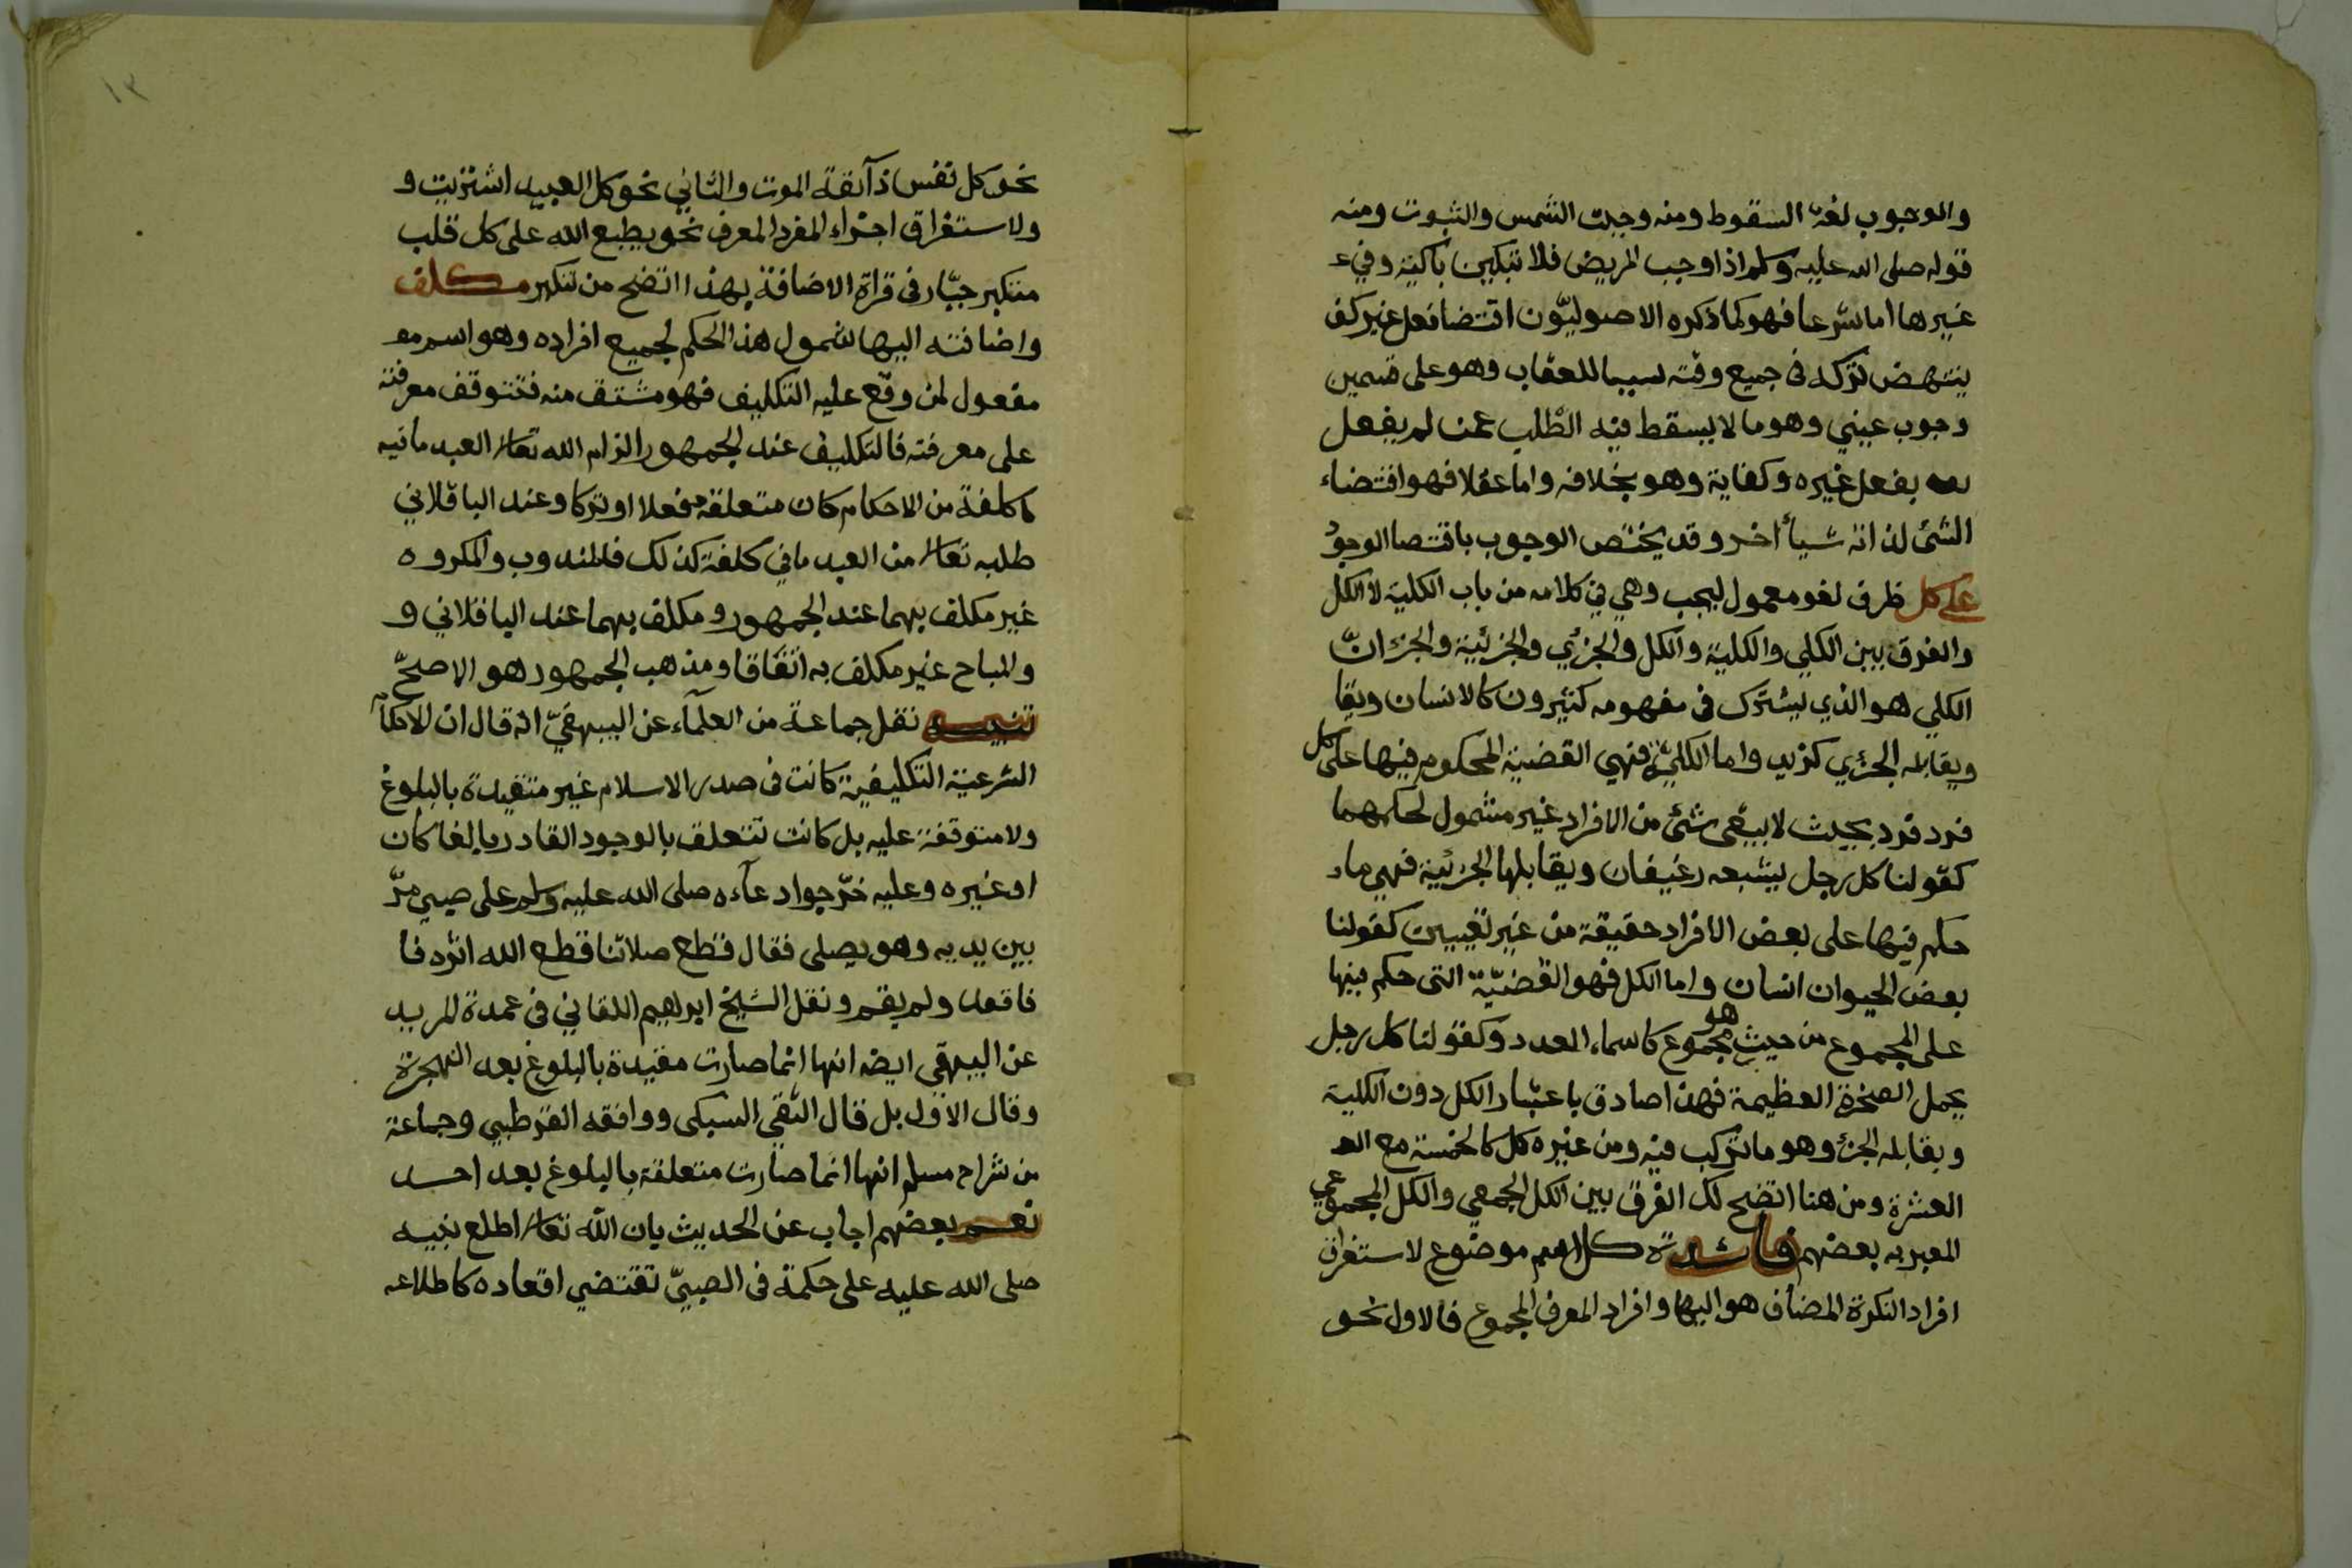 والوجوب لغة السقوط ومنه وجبت الشمس والثبوت ومنه
قوله صلى الله عليه وسلم اذا وجب المريض فلا تبكين باكية وفيء
غيرها اما شرعا فهو كما ذكره الاصوليّون اقتضا فعل غير كف
ينتهض تركه فى جميع وقته سببا للعقاب وهو على قسمين
وجوب عيني وهو ما لا يسقط فيه الطّلب عمن لم يفعل
بفعل غيره وكفاية وهو بخلافه واما عقلا فهو اقتضاء
الشئ لذاته شيأ اخر وقد يختص الوجوب باقتصا الوجوْ
على كل ظرف لغو معمول ليجب وهي في كلامه من باب الكلية لا الكل
والفرق بيين الكلي والكلية والكل والجزئي والجزئية والجزء انّ
الكلي هو الذي يشترك فى مفهومه كثيرون كالانسان ويقا
ويقابله الجزئي كزيد واما الكلية فهي القضية المحكوم فيها على كل
فرد فرد بحيث لا يبقى شئ من الافراد غير مشمول لحكمهما
كقولنا كل رجل يشبعه رغيفان ويقابلها الجزئية فهي ما
حكم فيها على بعض الافراد حقيقة من غير تعيين كقولنا
بعض الحيوان انسان واما الكل فهو القضيّة التى حكم فيها
على المجموع من حيث هو مجموع كاسماء العدد وكقولنا كل رجل
يحمل الصخرة العظيمة فهذا صادق باعتبار الكل دون الكلية
ويقابله الجزء وهو ما تركب فيه ومن غيره كل كالخمسة مع الع
العشرة ومن هنا اتضح لك الفرق بين الكل الجمعي والكل المجموعي
المعبر به بعضهم فائدة كل اسم موضوع لاستغراق
افراد النكرة المضاف هو اليها وافراد المعرف المجموع فالاول نحو
١٣
نحو كل نفس ذآئقة الموت والثاني نحو كل العبيد اشتريت و
ولاستغراق اجزاء المفرد المعرف نحو يطبع الله على كل قلب
متكبر جبّار فى قراة الاضافة بهذا اتضح من تنكير مكلف
واضافته اليها شمول هذا الحكم لجميع افراده وهو اسم مفـ
مفعول لمن وقع عليه التكليف فهو مشتق منه فتتوقف معرفته
على معرفته فالتكليف عند الجمهور الزام الله تعالى العبد ما فيه
كلفة من الاحكام كان متعلقه فعلا او تركا وعند الباقلاني
طلبه تعالى من العبد ما في كلفة كذلك فالمندوب والمكروه
غير مكلف بهما عند الجمهور ومكلف بهما عند الباقلاني و
والمباح غير مكلف به اتفاقا ومذهب الجمهور هو الاصحّ
تنبيه نقل جماعة من العلمآء عن البيهقيّ انه قال ان الاحكآم
الشرعية التكليفية كانت فى صدر الاسلام غير متقيدة بالبلوغ
ولا متوقفة عليه بل كانت تتعلق بالوجود القادر بالغا كان
او غيره وعليه خرّجوا دعآءه صلى الله عليه وسلم على صبي مرّ
بين يديه وهو يصلى فقال قطع صلاتنا قطع الله اثره فا
فاقعد ولم يقم ونقل الشيخ ابراهيم اللقاني فى عمدة المريد
عن البيهقى ايضه انها انما صارت مقيدة بالبلوغ بعد الهجرة
وقال الاول بل قال التقي السبكى ووافقه القرطبي وجماعة
من شراح مسلم انها انما صارت متعلقة بالبلوغ بعد احد
نعم بعضهم اجاب عن الحديث بان الله تعالى اطلع نبيه
صلى الله عليه على حكمة فى الصبيّ تقتضي اقعاده كاطلاعه